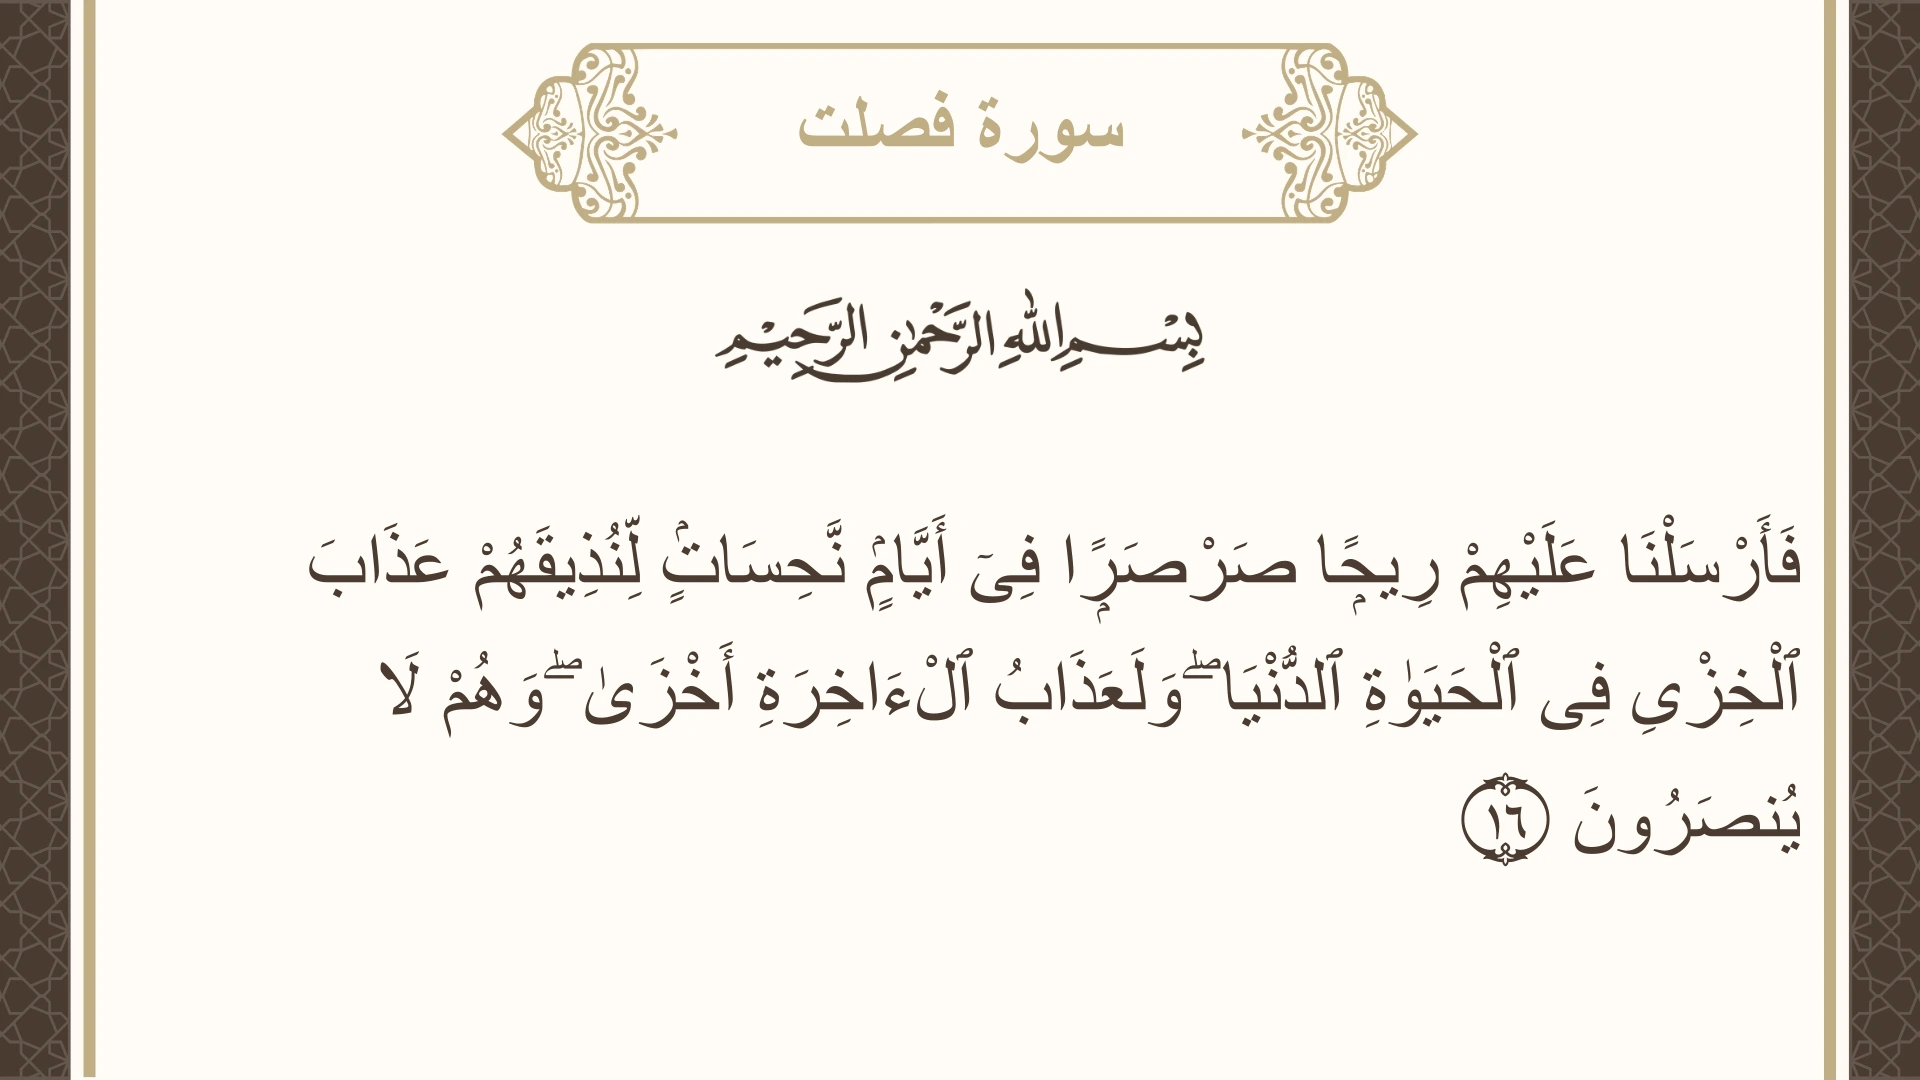 سورة فصلت
بِسْمِ اللهِ الرَّحْمٰنِ الرَّحِيمِ
فَأَرْسَلْنَا عَلَيْهِمْ رِيحًۭا صَرْصَرًۭا فِىٓ أَيَّامٍۢ نَّحِسَاتٍۢ لِّنُذِيقَهُمْ عَذَابَ
ٱلْخِزْىِ فِى ٱلْحَيَوٰةِ ٱلدُّنْيَا ۖ وَلَعَذَابُ ٱلْءَاخِرَةِ أَخْزَىٰ ۖ وَهُمْ لَا
يُنصَرُونَ ١٦